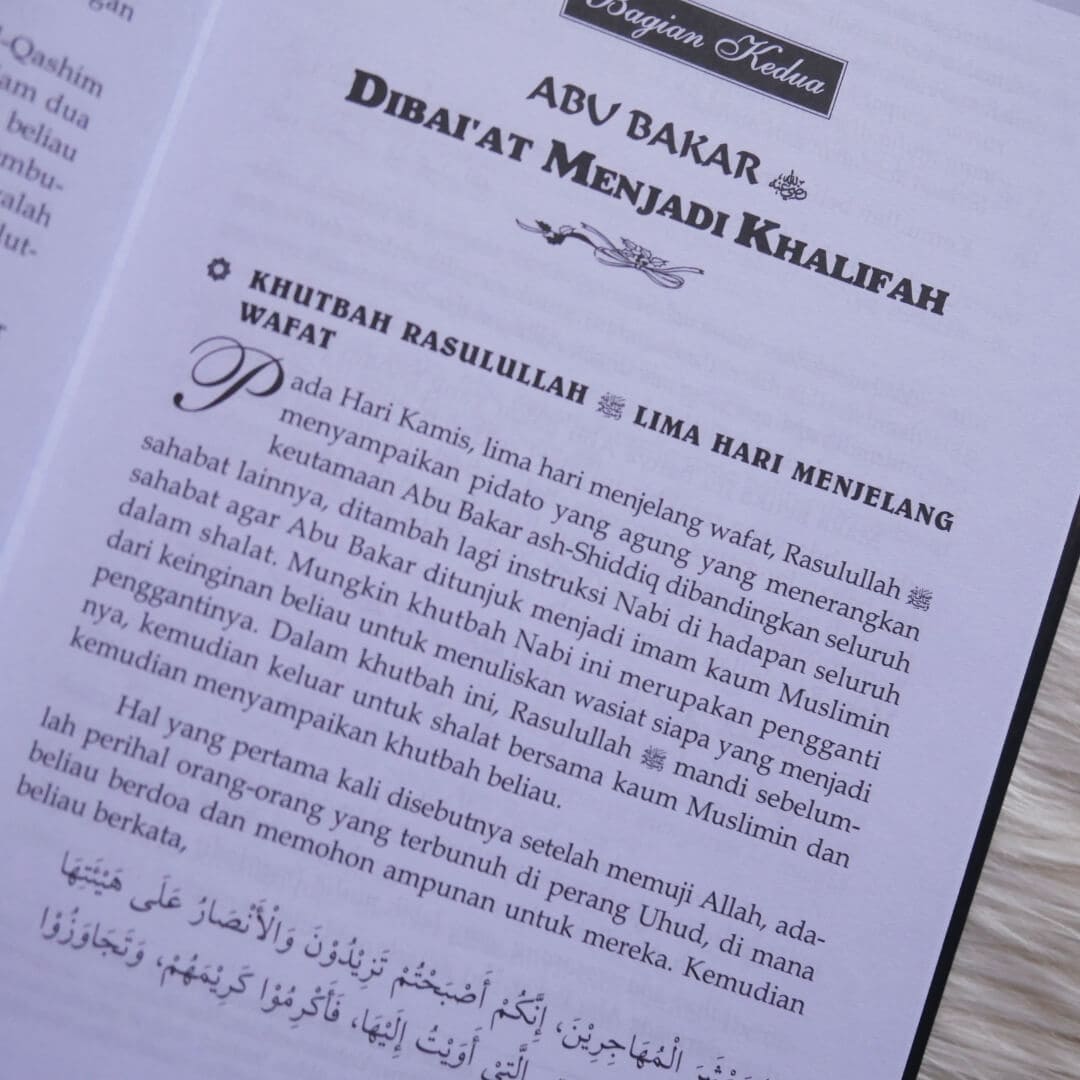 gan
l-Qashim
am dua
beliau
mbu-
alah
lut-
Bagian Kedua
ABU BAKAR
DIBAI'AT MENJADI KHALIFAH
KHUTBAH RASULULLAH ﷺ LIMA HARI MENJELANG
WAFAT
Pada Hari Kamis, lima hari menjelang wafat, Rasulullah ﷺ
menyampaikan pidato yang agung yang menerangkan
keutamaan Abu Bakar ash-Shiddiq dibandingkan seluruh
sahabat lainnya, ditambah lagi instruksi Nabi di hadapan seluruh
sahabat agar Abu Bakar ditunjuk menjadi imam kaum Muslimin
dalam shalat. Mungkin khutbah Nabi ini merupakan pengganti
dari keinginan beliau untuk menuliskan wasiat siapa yang menjadi
penggantinya. Dalam khutbah ini, Rasulullah ﷺ mandi sebelum-
nya, kemudian keluar untuk shalat bersama kaum Muslimin dan
kemudian menyampaikan khutbah beliau.
Hal yang pertama kali disebutnya setelah memuji Allah, ada-
lah perihal orang-orang yang terbunuh di perang Uhud, di mana
beliau berdoa dan memohon ampunan untuk mereka. Kemudian
beliau berkata,
الْمُهَاجِرِيْنَ، إِنَّكُمْ أَصْبَحْتُمْ تَزِيْدُوْنَ وَالْأَنْصَارُ عَلَى هَيْئَتِهَا
الَّتِيْ أَوَيْتُ إِلَيْهَا، فَأَكْرِمُوْا كَرِيْمَهُمْ، وَتَجَاوَزُوْا